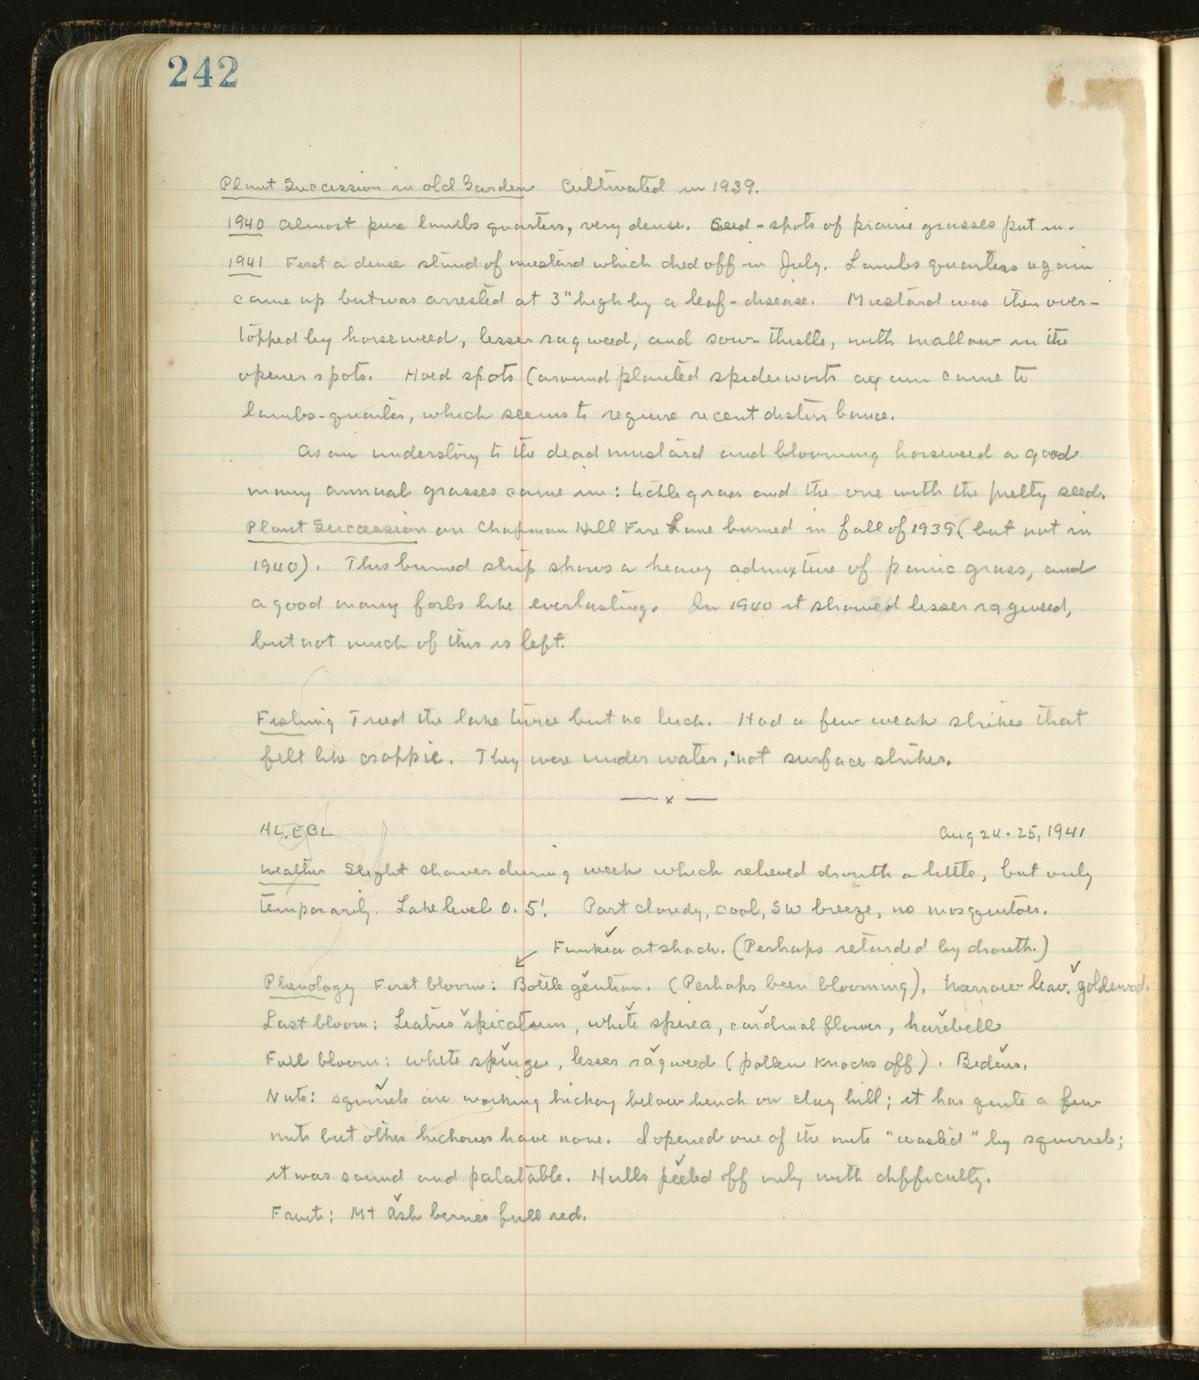 242
Plant Succession in old Garden Cultivated in 1939.
1940 Almost pure lambs quarters, very dense. Seed-spots of prairie grasses put in.
1941 First a dense stand of mustard which died off in July. Lambs quarters again
came up but was arrested at 3" high by a leaf-disease. Mustard was then over-
topped by horseweed, lesser ragweed, and sow-thistle, with mallow in the
opener spots. Hoed spots (around planted spiderworts again came to
lambs-quarter, which seems to require recent disturbance.
As an understory to the dead mustard and blooming horseweed a good
many annual grasses came in: tickle grass and the one with the pretty seed.
Plant Succession on Chapman Hill Fire Lane burned in fall of 1939 (but not in
1940). This burned strip shows a heavy admixture of panic grass, and
a good many forbs like everlasting. In 1940 it showed lesser ragweed,
but not much of this is left.
Fishing Tried the lake twice but no luck. Had a few weak strikes that
felt like croppie. They were under water, not surface strikes.
— x —
AL, EBL Aug 24-25, 1941
Weather Slight shower during week which relieved drouth a little, but only
temporarily. Lake level 0.5'. Part cloudy, cool, SW breeze, no mosquitoes.
Funkia at shack. (Perhaps retarded by drouth.)
Phenology First bloom: Bottle gentian. (Perhaps been blooming). Narrow leav. goldenrod.
Last bloom: Liatris spicatum, white spirea, cardinal flower, harebell
Full bloom: white spurge, lesser ragweed (pollen knocks off). Bidens.
Nuts: squirrels are working hickory below bench on clay hill; it has quite a few
nuts but other hickories have none. I opened one of the nuts "wasted" by squirrels;
it was sound and palatable. Hulls peeled off only with difficulty.
Fruit: Mt Ash berries full red.